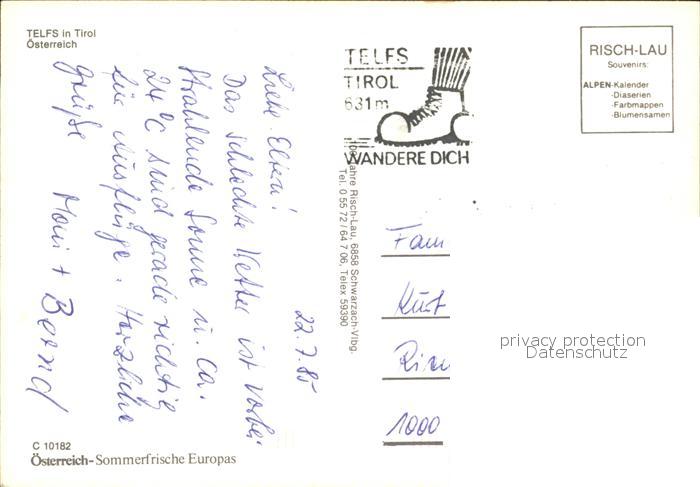 TELFS in Tirol
Österreich
22.7.85
Liebe Eltern!
Das schlechte Wetter ist vorbei
Strahlende Sonne u. ca.
24°C sind gerade richtig
für Ausflüge. Herzliche
Grüße Moni + Bernd
TELFS
TIROL
631m
WANDERE DICH
RISCH-LAU
Souvenirs:
ALPEN-Kalender
-Diaserien
-Farbmappen
-Blumensamen
Jahre Risch-Lau, 6858 Schwarzach-Vlbg.
Tel. 0 55 72/64 7 06, Telex 59390
Fam
Kurt
1000
privacy protection
Datenschutz
C 10182
Österreich-Sommerfrische Europas